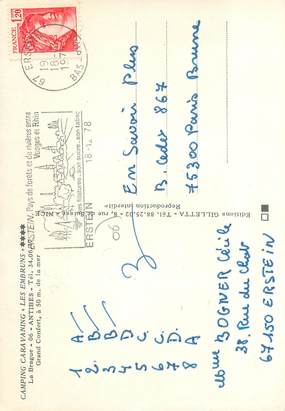 CAMPING CARAVANING - LES EMBRUNS - ★★★★
La Brague - 06 - ANTIBES - Tél. 34.00
Grand Confort, à 50 m. de la mer
1. A
2. B
3. B
4. D
5. C
6. C.
7. D.
8 A
Mme BOGNER Cécile
38, Rue du
67150 ERSTEIN
Editions GILLETTA - Tél. 88-25-
Reproduction interdite
FRANCE
1,20
67 ERSTEIN
18-
BAS
ERSTEIN, Pays de forêts et de rivières entre
Vosges et Rhin
son sucre, son tabac
ERSTEIN
18-1 78
06
En Savoir Plus
B. Cedex 867
75300 Paris Brune